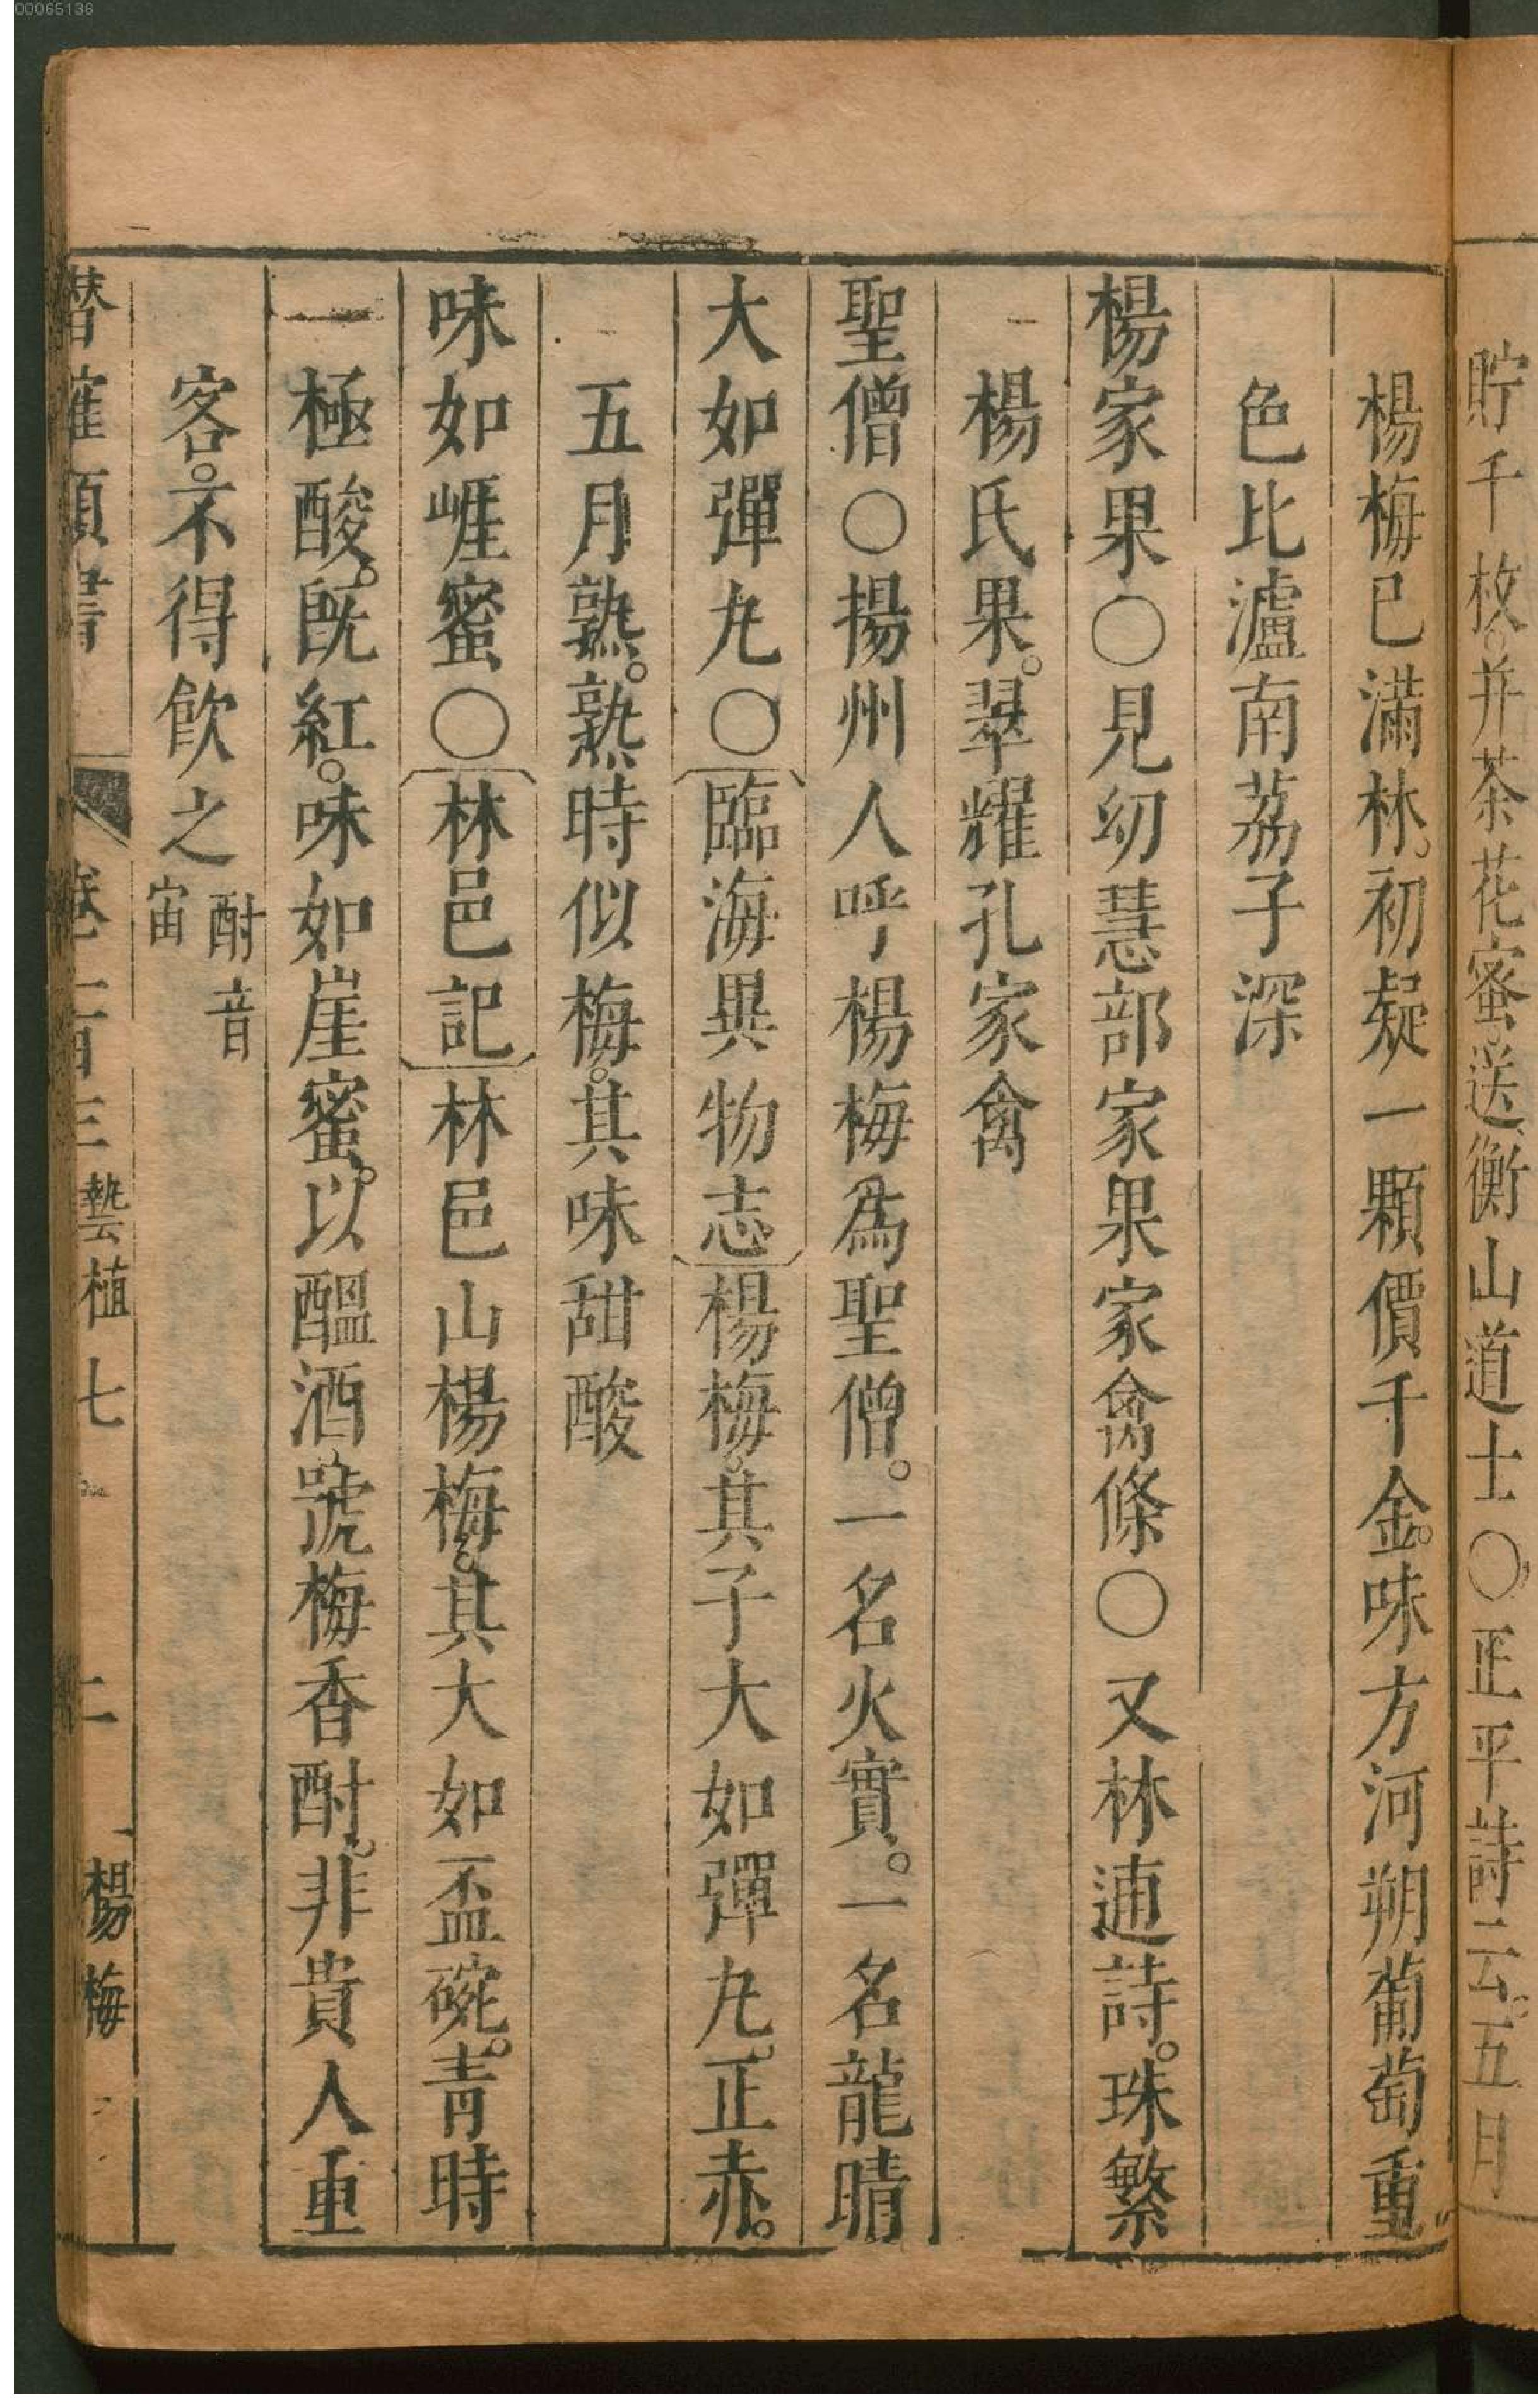 00065136
貯千枚。并茶花蜜。送衡山道士〇正平詩云。五月
楊梅已滿林。初疑一顆價千金。味方河朔葡萄重
色比瀘南荔子深
楊家果〇見幼慧部家果家禽條〇又林逋詩。珠繁
楊氏果。翠耀孔家禽
聖僧〇揚州人呼楊梅爲聖僧。一名火實。一名龍睛
大如彈丸〇臨海異物志楊梅。其子大如彈丸。正赤。
五月熟。熟時似梅。其味甜酸
味如崕蜜〇林邑記林邑山楊梅。其大如盃碗。青時
極酸。旣紅。味如崖蜜。以醞酒、號梅香酎。非貴人重
客。不得飲之酎音宙
潛確類書 卷一百三 藝植七 二 楊梅